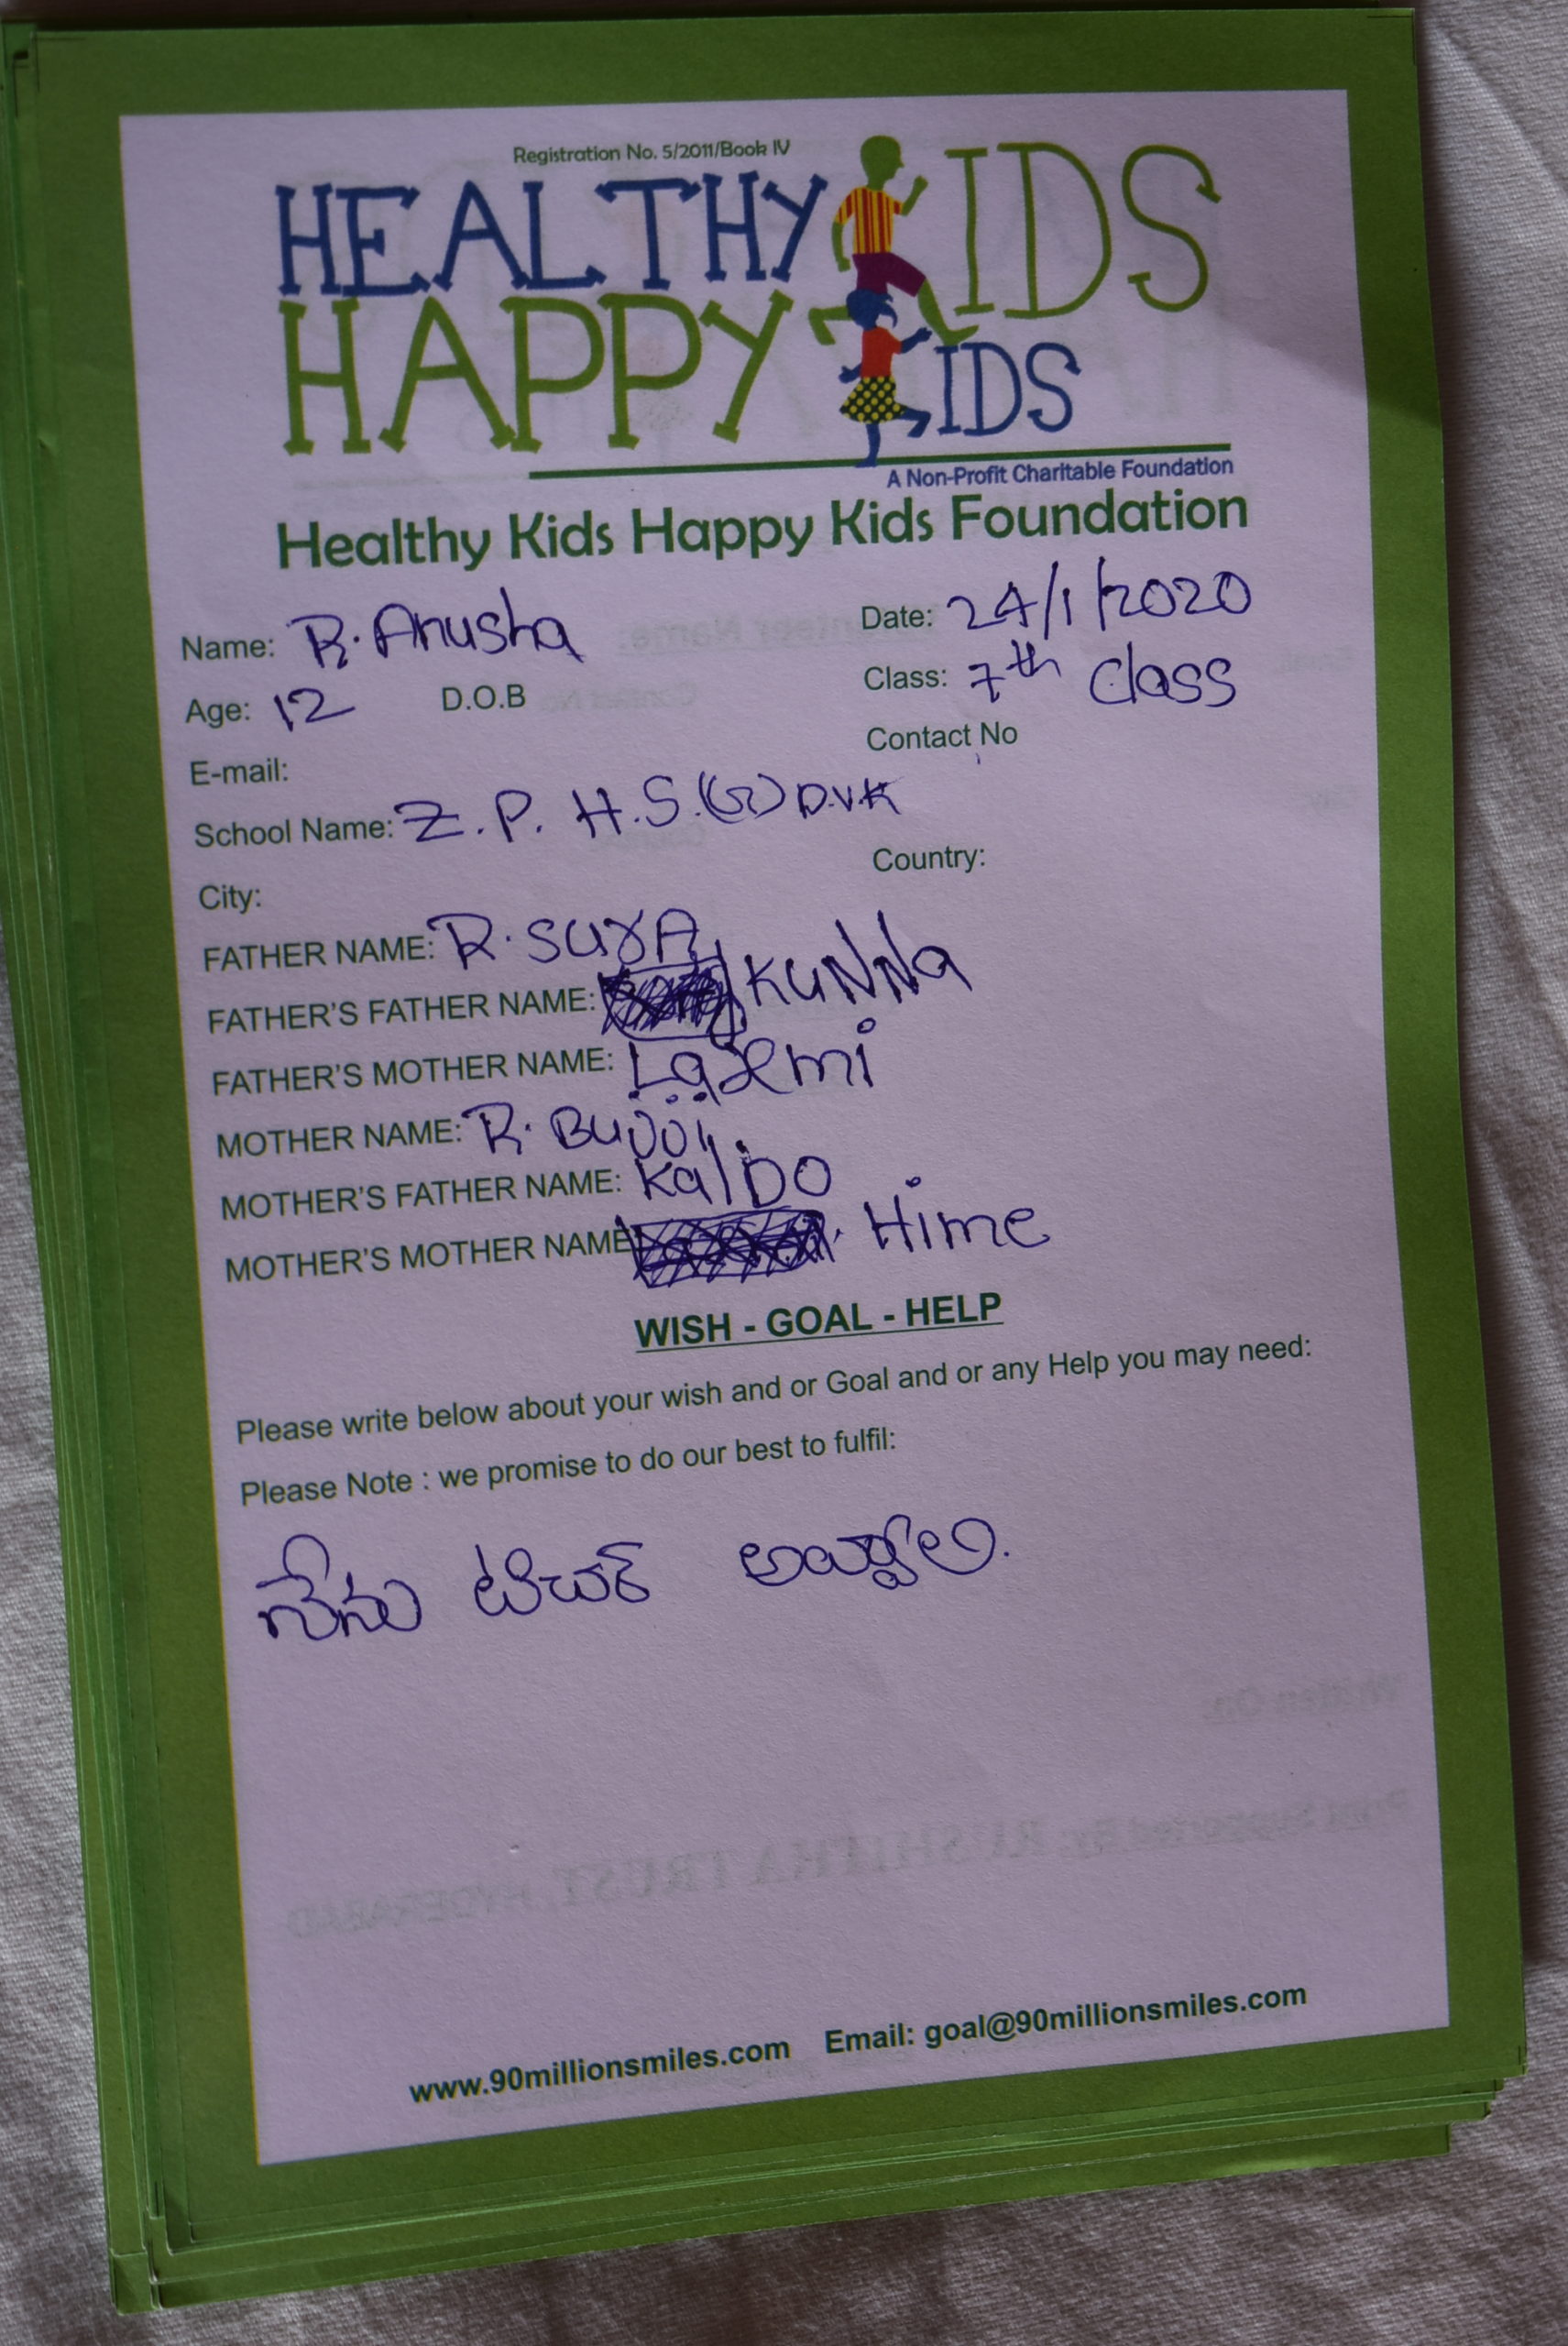 Registration No. 5/2011/Book IV
HEALTHY KIDS
HAPPY KIDS
A Non-Profit Charitable Foundation
Healthy Kids Happy Kids Foundation
Name: R. Anusha Date: 24/1/2020
Age: 12 D.O.B Class: 7th class
E-mail: Contact No
School Name: Z. P. H. S. (G) D.V.K
City: Country:
FATHER NAME: R. SURA
FATHER'S FATHER NAME: KUNNA
FATHER'S MOTHER NAME: Laxmi
MOTHER NAME: R.
MOTHER'S FATHER NAME:
MOTHER'S MOTHER NAME Hime
WISH - GOAL - HELP
Please write below about your wish and or Goal and or any Help you may need:
Please Note : we promise to do our best to fulfil:
నేను టిచర్ అవ్వాలి.
www.90millionsmiles.com Email: goal@90millionsmiles.com